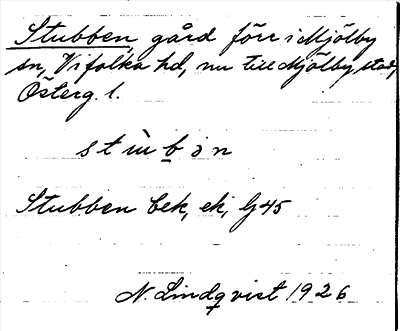 Stubben, gård förr i Mjölby
sn, Vifolka hd, nu till Mjölby stad,
Österg. l.
st ù b ə n
Stubben bek, ek, lj 45
N. Lindqvist 1926